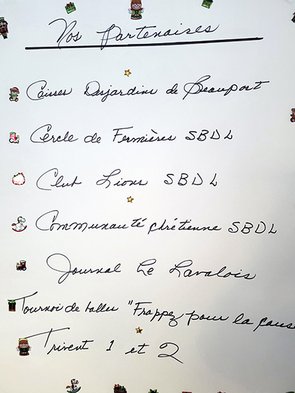 Nos Partenaires
Caisses Desjardins de Beauport
Cercle de Fermières SBDL
Club Lions SBDL
Communauté chrétienne SBDL
Journal Le Lavalois
Tournoi de balles "Frappez pour la
Trivent 1 et 2